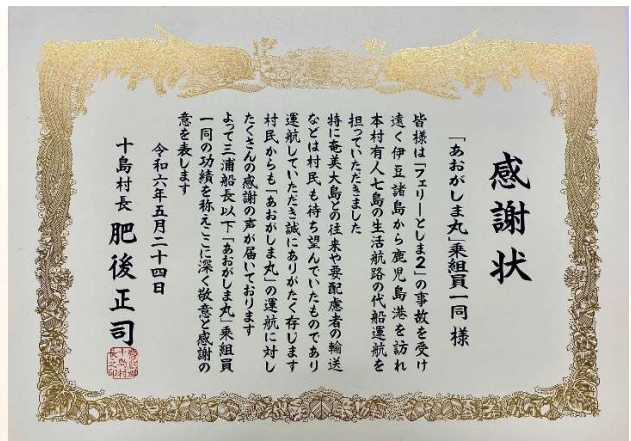 感謝状
「あおがしま丸」乗組員一同 様
皆様は「フェリーとしま2」の事故を受け
遠く伊豆諸島から鹿児島港を訪れ
本村有人七島の生活航路の代船運航を
担っていただきました
特に奄美大島との往来や要配慮者の輸送
などは村民も待ち望んでいたものであり
運航していただき誠にありがたく存じます
村民からも「あおがしま丸」の運航に対し
たくさんの感謝の声が届いております
よって三浦船長以下「あおがしま丸」乗組員
一同の功績を称えここに深く敬意と感謝の
意を表します
令和六年五月二十四日
十島村長 肥後正司